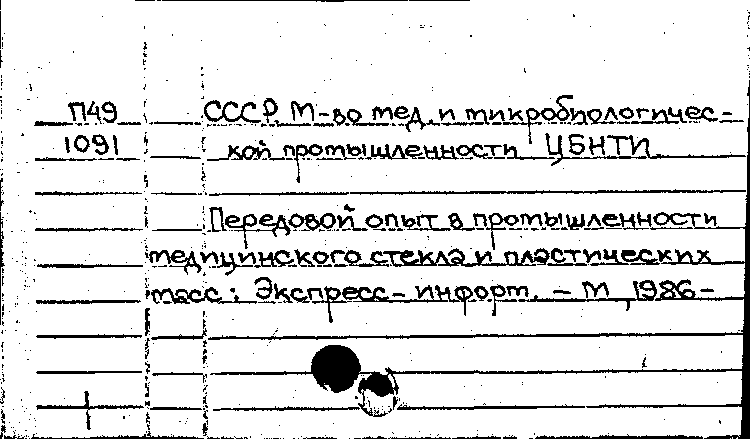 П49 СССР. М-во мед. и микробиологичес-
1091 кой промышленности ЦБНТИ
Передовой опыт в промышленности
медицинского стекла и пластических
масс: Экспресс-информ. - М, 1986-